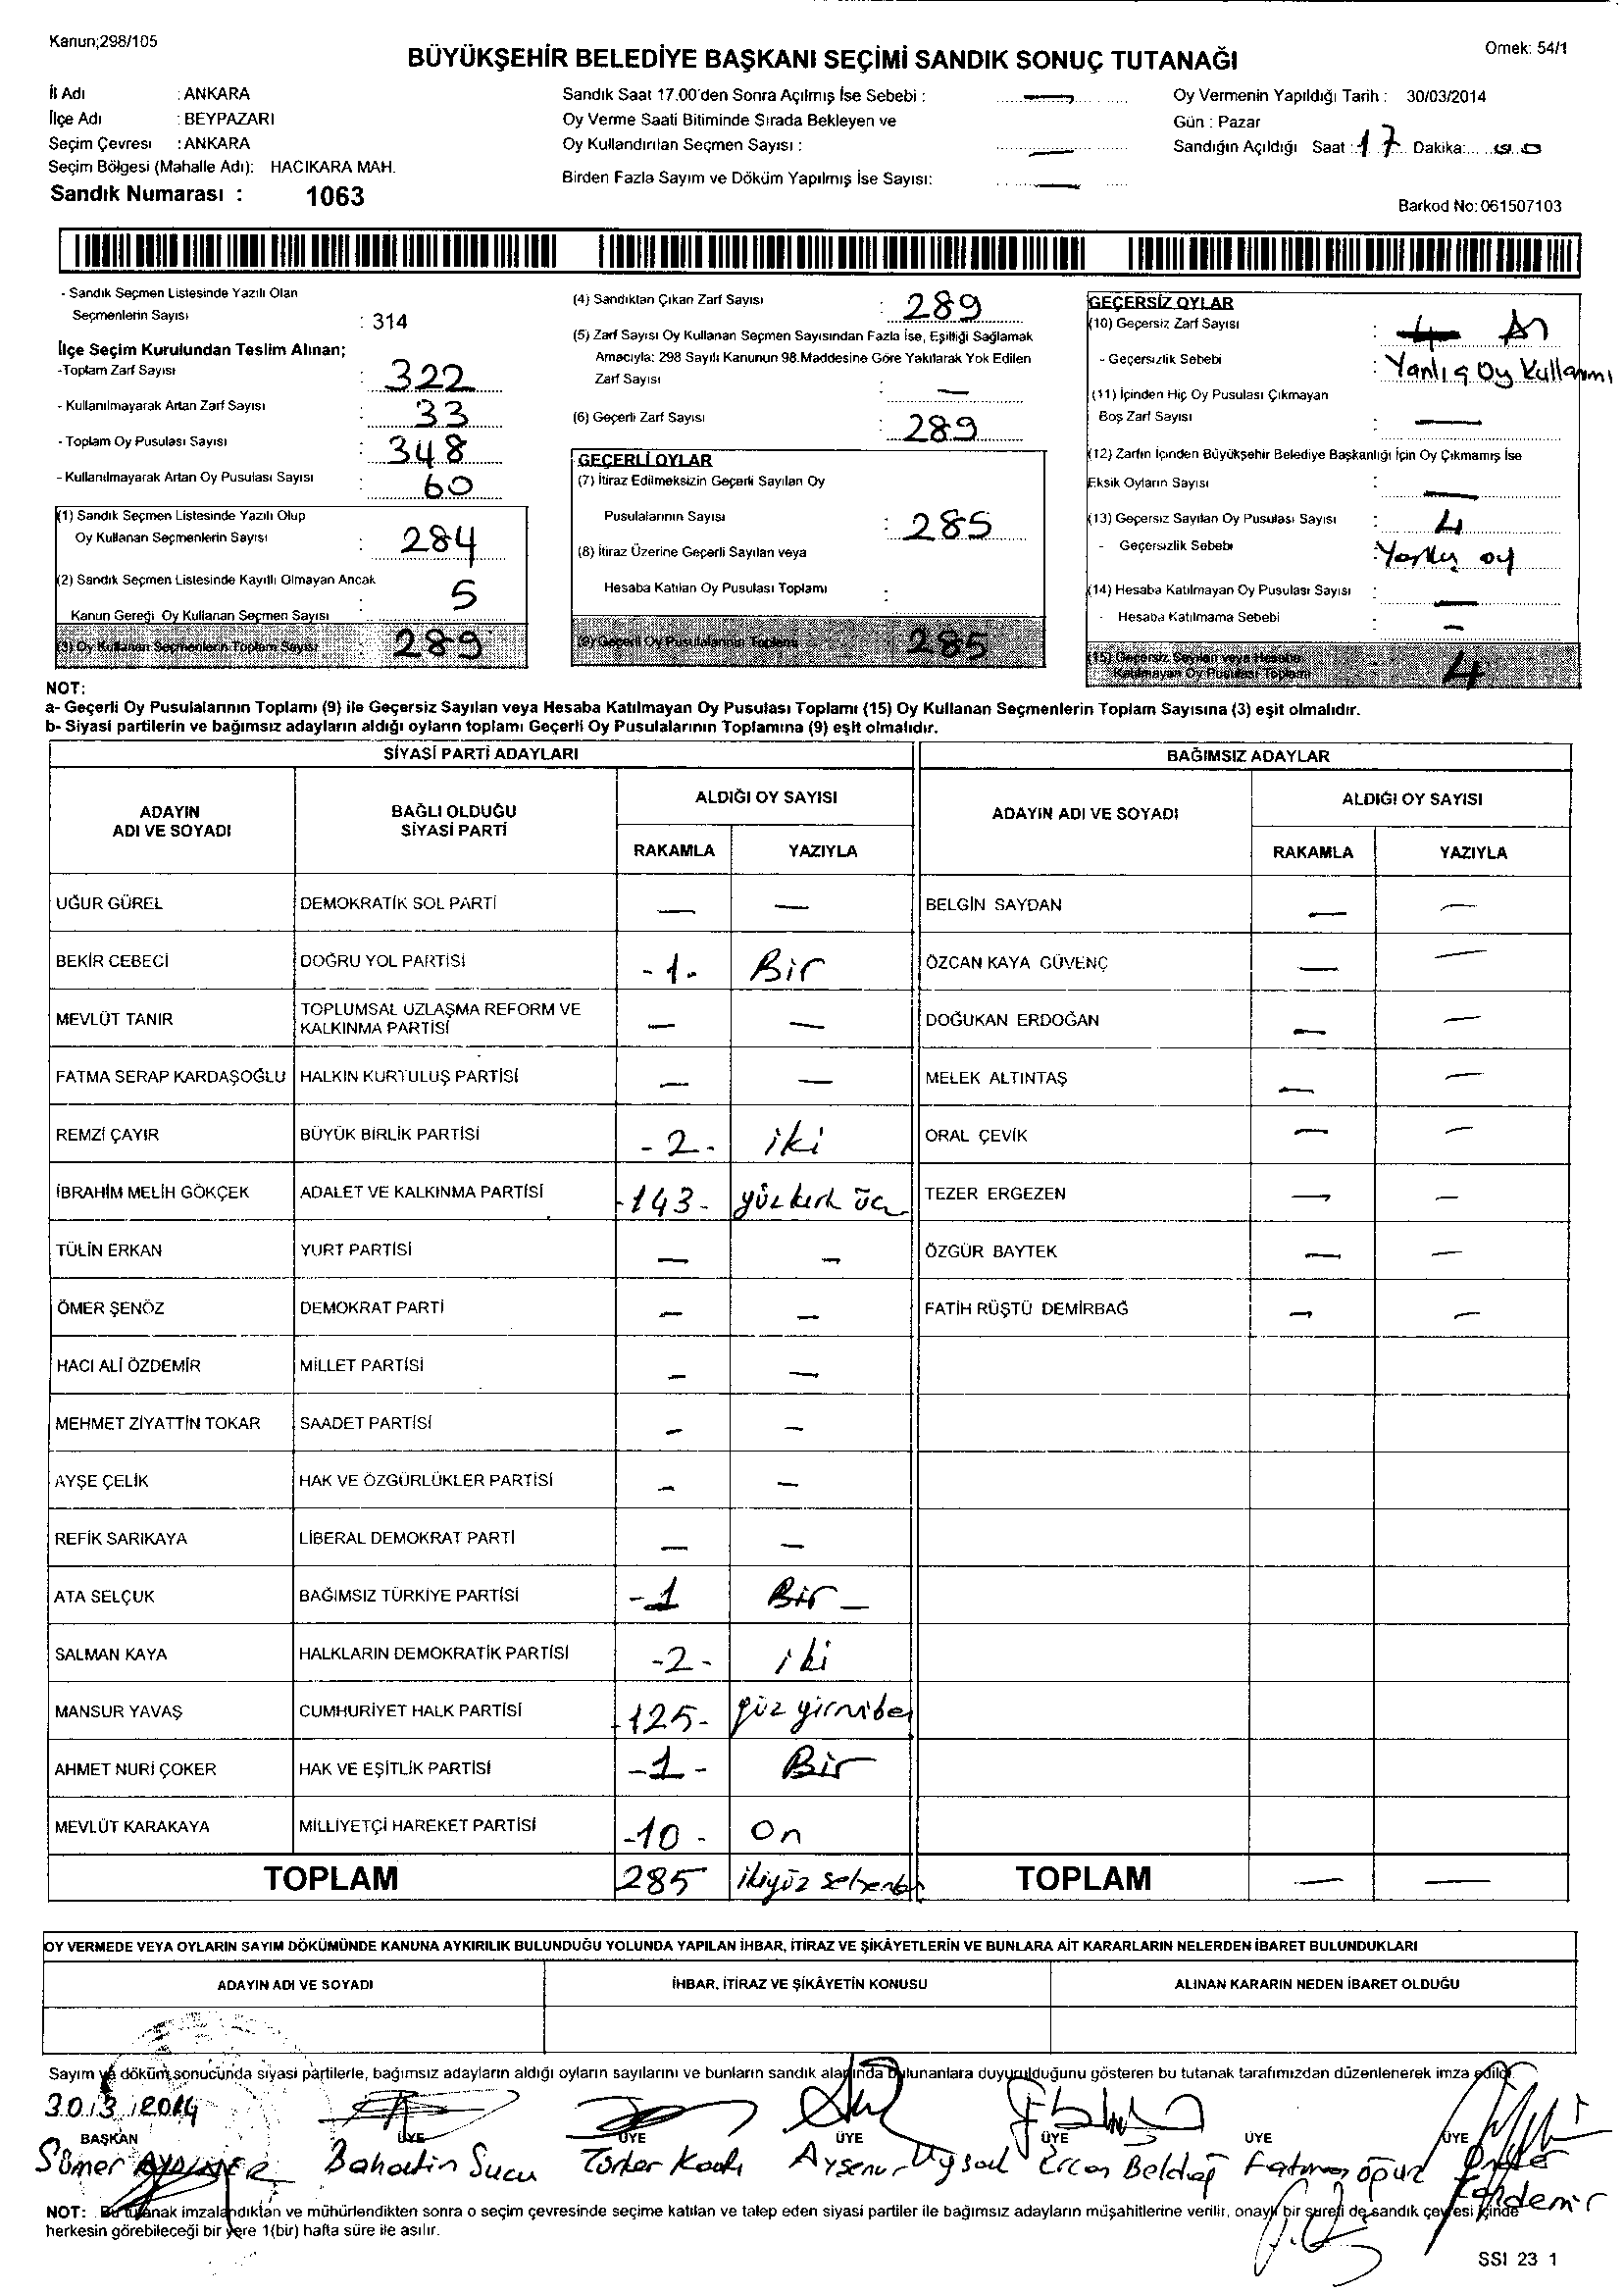 Kanun;298/105
Örnek: 54/1
BÜYÜKŞEHİR BELEDİYE BAŞKANI SEÇİMİ SANDIK SONUÇ TUTANAĞI
İl Adı : ANKARA
İlçe Adı : BEYPAZARI
Seçim Çevresi : ANKARA
Seçim Bölgesi (Mahalle Adı): HACIKARA MAH.
Sandık Numarası : 1063
Sandık Saat 17.00'den Sonra Açılmış İse Sebebi : —
Oy Verme Saati Bitiminde Sırada Bekleyen ve
Oy Kullandırılan Seçmen Sayısı : —
Birden Fazla Sayım ve Döküm Yapılmış İse Sayısı: —
Oy Vermenin Yapıldığı Tarih : 30/03/2014
Gün : Pazar
Sandığın Açıldığı Saat : 17 Dakika:
Barkod No: 061507103
- Sandık Seçmen Listesinde Yazılı Olan
Seçmenlerin Sayısı : 314
İlçe Seçim Kurulundan Teslim Alınan;
-Toplam Zarf Sayısı : 322
- Kullanılmayarak Artan Zarf Sayısı : 33
- Toplam Oy Pusulası Sayısı : 348
- Kullanılmayarak Artan Oy Pusulası Sayısı : 60
(1) Sandık Seçmen Listesinde Yazılı Olup
Oy Kullanan Seçmenlerin Sayısı : 284
(2) Sandık Seçmen Listesinde Kayıtlı Olmayan Ancak
Kanun Gereği Oy Kullanan Seçmen Sayısı : 5
(3) Oy Kullanan Seçmenlerin Toplam Sayısı 289
(4) Sandıktan Çıkan Zarf Sayısı : 289
(5) Zarf Sayısı Oy Kullanan Seçmen Sayısından Fazla İse, Eşitliği Sağlamak
Amacıyla: 298 Sayılı Kanunun 98.Maddesine Göre Yakılarak Yok Edilen
Zarf Sayısı : —
(6) Geçerli Zarf Sayısı : 289
GEÇERLİ OYLAR
(7) İtiraz Edilmeksizin Geçerli Sayılan Oy
Pusulalarının Sayısı : 285
(8) İtiraz Üzerine Geçerli Sayılan veya
Hesaba Katılan Oy Pusulası Toplamı :
(9) Geçerli Oy Pusulalarının Toplamı 285
GEÇERSİZ OYLAR
(10) Geçersiz Zarf Sayısı :
- Geçersizlik Sebebi : Yanlış Oy Kullanımı
(11) İçinden Hiç Oy Pusulası Çıkmayan
Boş Zarf Sayısı : —
(12) Zarfın İçinden Büyükşehir Belediye Başkanlığı İçin Oy Çıkmamış İse
Eksik Oyların Sayısı : —
(13) Geçersiz Sayılan Oy Pusulası Sayısı : 4
- Geçersizlik Sebebi : Yanlış oy
(14) Hesaba Katılmayan Oy Pusulası Sayısı : —
- Hesaba Katılmama Sebebi : —
(15) Geçersiz Sayılan veya Hesaba
Katılmayan Oy Pusulası Toplamı 4
NOT:
a- Geçerli Oy Pusulalarının Toplamı (9) ile Geçersiz Sayılan veya Hesaba Katılmayan Oy Pusulası Toplamı (15) Oy Kullanan Seçmenlerin Toplam Sayısına (3) eşit olmalıdır.
b- Siyasi partilerin ve bağımsız adayların aldığı oyların toplamı Geçerli Oy Pusulalarının Toplamına (9) eşit olmalıdır.
SİYASİ PARTİ ADAYLARI BAĞIMSIZ ADAYLAR
ADAYIN ADI VE SOYADI BAĞLI OLDUĞU SİYASİ PARTİ ALDIĞI OY SAYISI ADAYIN ADI VE SOYADI ALDIĞI OY SAYISI
RAKAMLA YAZIYLA RAKAMLA YAZIYLA
UĞUR GÜREL DEMOKRATİK SOL PARTİ — — BELGİN SAYDAN — —
BEKİR CEBECİ DOĞRU YOL PARTİSİ -1- Bir ÖZCAN KAYA GÜVENÇ — —
MEVLÜT TANIR TOPLUMSAL UZLAŞMA REFORM VE KALKINMA PARTİSİ — — DOĞUKAN ERDOĞAN — —
FATMA SERAP KARDAŞOĞLU HALKIN KURTULUŞ PARTİSİ — — MELEK ALTINTAŞ — —
REMZİ ÇAYIR BÜYÜK BİRLİK PARTİSİ -2- iki ORAL ÇEVİK — —
İBRAHİM MELİH GÖKÇEK ADALET VE KALKINMA PARTİSİ -143- yüz kırk üç TEZER ERGEZEN — —
TÜLİN ERKAN YURT PARTİSİ — — ÖZGÜR BAYTEK — —
ÖMER ŞENÖZ DEMOKRAT PARTİ — — FATİH RÜŞTÜ DEMİRBAĞ — —
HACI ALİ ÖZDEMİR MİLLET PARTİSİ — —
MEHMET ZİYATTİN TOKAR SAADET PARTİSİ — —
AYŞE ÇELİK HAK VE ÖZGÜRLÜKLER PARTİSİ — —
REFİK SARIKAYA LİBERAL DEMOKRAT PARTİ — —
ATA SELÇUK BAĞIMSIZ TÜRKİYE PARTİSİ -1 Bir —
SALMAN KAYA HALKLARIN DEMOKRATİK PARTİSİ -2- iki
MANSUR YAVAŞ CUMHURİYET HALK PARTİSİ -125- yüz
AHMET NURİ ÇOKER HAK VE EŞİTLİK PARTİSİ -1- Bir
MEVLÜT KARAKAYA MİLLİYETÇİ HAREKET PARTİSİ -10- On
TOPLAM 285 ikiyüz TOPLAM — —
OY VERMEDE VEYA OYLARIN SAYIM DÖKÜMÜNDE KANUNA AYKIRILIK BULUNDUĞU YOLUNDA YAPILAN İHBAR, İTİRAZ VE ŞİKÂYETLERİN VE BUNLARA AİT KARARLARIN NELERDEN İBARET BULUNDUKLARI
ADAYIN ADI VE SOYADI İHBAR, İTİRAZ VE ŞİKÂYETİN KONUSU ALINAN KARARIN NEDEN İBARET OLDUĞU
Sayım ve döküm sonucunda siyasi partilerle, bağımsız adayların aldığı oyların sayılarını ve bunların sandık alanında bulunanlara duyurulduğunu gösteren bu tutanak tarafımızdan düzenlenerek imza edildi.
30/3/2014
BAŞKAN ÜYE ÜYE ÜYE ÜYE ÜYE ÜYE
Sümer Bahattin Sucu Türker Aysenur Uysal Ercan Beldağ Fatma
NOT: Bu tutanak imzalandıktan ve mühürlendikten sonra o seçim çevresinde seçime katılan ve talep eden siyasi partiler ile bağımsız adayların müşahitlerine verilir, onaylı bir sureti de sandık çevresi içinde
herkesin görebileceği bir yere 1(bir) hafta süre ile asılır.
SSI 23 1